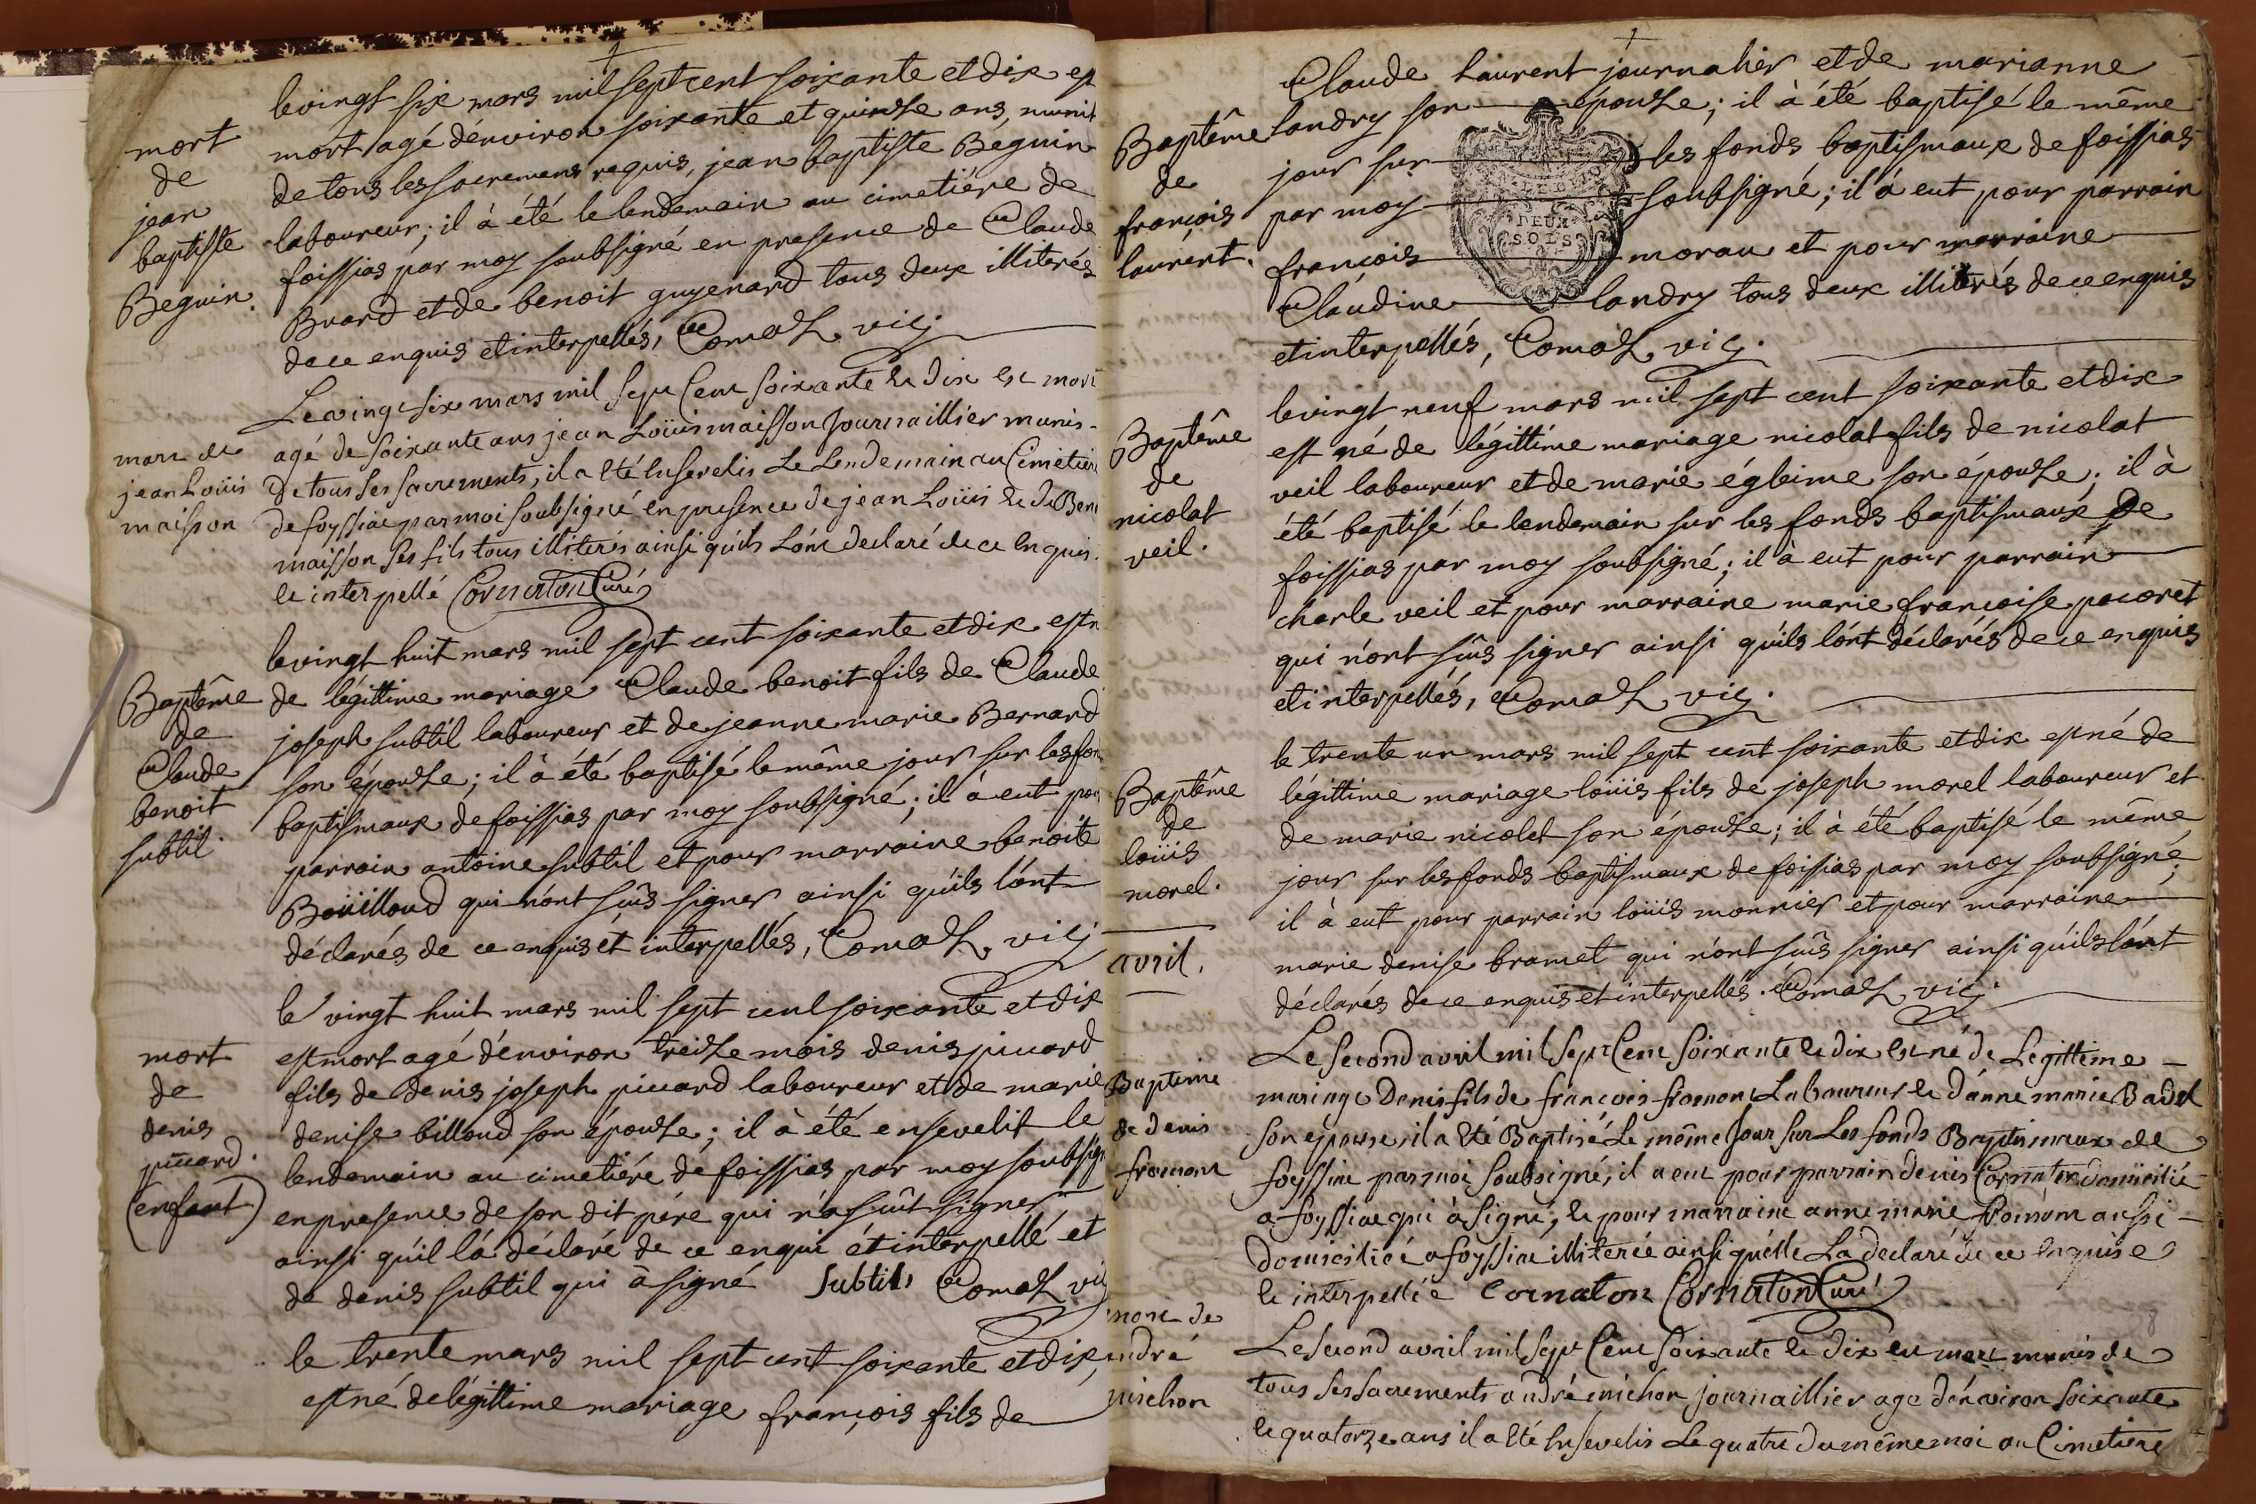 mort
de
jean
baptiste
Beguin.
le vingt six mars mil sept cent soixante et dix est
mort agé d'énviron soixante et quinze ans, munit
de tous les sacremens requis, jean baptiste Béguin
laboureur; il à été le lendemain au cimetiére de
foissias par moy soubsigné en presence de Claude
Buard et de benoit guyenard tous deux illiterés
de ce enquis et interpellés, Comas vicj
mort de
jean Loüis
maisson
Le vingt six mars mil sept Cent soixante et dix est mort
agé de soixante ans jean Loüis maisson Journaillier munis
de tous ses sacrements, il a été Enseveli Le Lendemain au Cimetiere
de foyssiac par moi soubsigné en presence de jean Loüis et de Ben
maisson ses fils tous illiterés ainsi qu'ils L'ónt declaré de ce Enquis
et interpellé Cornaton Curé
Baptême
de
Claude
benoit
subtil.
le vingt huit mars mil sept cent soixante et dix est n
de légittime mariage Claude benoit fils de Claude
joseph subtil laboureur et de jeanne marie Bernard
son épouse; il à été baptisé le même jour sur les fon
baptismaux de foissias par moy soubsigné; il à eut pour
parrain antoine subtil et pour marraine benoite
Boüilloud qui n'ont sûs signer ainsi qu'ils l'ónt
déclarés de ce enquis et interpellés, Comas vicj
mort
de
denis
piccard.
(enfant)
le vingt huit mars mil sept cent soixante et dix
est mort agé d'énviron treize mois denis piccard
fils de denis joseph piccard laboureur et de marie
denise billoud son épouse; il à été ensevelit le
lendemain au cimetiére de foissias par moy soubsign
en presence de son dit pére qui n'a sût signer
ainsi qu'il l'à déclaré de ce enquie et interpellé et
de denis subtil qui à signé Subtil Comas vicj
le trente mars mil sept cent soixante et dix,
est né de légittime mariage françois fils de
Baptême
de
françois
laurent.
Claude laurent journalier et de marianne
landry son épouse; il à été baptisé le même
jour sur les fonds baptismaux de foissias
par moy soubsigné; il à eut pour parrain
françois morau et pour marraine
Claudine landry tous deux illiterés de ce enquis
et interpellés, Comas vicj.
DEUX
SOLS
Baptême
de
nicolat
veil.
le vingt neuf mars mil sept cent soixante et dix
est né de légittime mariage nicolat fils de nicolat
veil laboureur et de marie égleime son épouse; il à
été baptisé le lendemain sur les fonds baptismaux de
foissias par moy soubsigné; il à eut pour parrain
charle veil et pour marraine marie françoise pocoret
qui n'ont sûs signer ainsi qu'ils l'ónt déclarés de ce enquis
et interpellés, Comas vicj.
Baptême
de
loüis
morel.
le trente un mars mil sept cent soixante et dix est né de
légittime mariage loüis fils de joseph morel laboureur et
de marie nicolet son épouse; il à été baptisé le même
jour sur les fonds baptismaux de foissias par moy soubsigné;
il à eut pour parrain loüis monnier et pour marraine
marie denise bramet qui n'ont sûs signer ainsi qu'ils l'ónt
déclarés de ce enquis et interpellés. Comas vicj.
avril.
Bapteme
de denis
fromont
Le second avril mil sept Cent soixante et dix est né de Legittime
mariage Denis fils de françois fromont Laboureur et d'anne marie Badel
son épouse, il a été Baptisé Le même Jour sur Les fonds Baptismaux de
foyssiac par moi soubsigné, il a eut pour parrain denis Cornaton domicilié
a foyssiac qui à signé, et pour marraine anne marie fromont aussi
domiciliée a foyssiac illiterée ainsi qu'elle L'a declaré de ce enquise
et interpellée Cornaton Cornaton Curé
8
mort de
andré
michon
Le second avril mil sept Cent soixante et dix est mort munis de
tous ses sacrements andré michon journaillier agé d'énviron soixante
et quatorze ans il a été Ensevelis Le quatre du même moi au Cimetiere